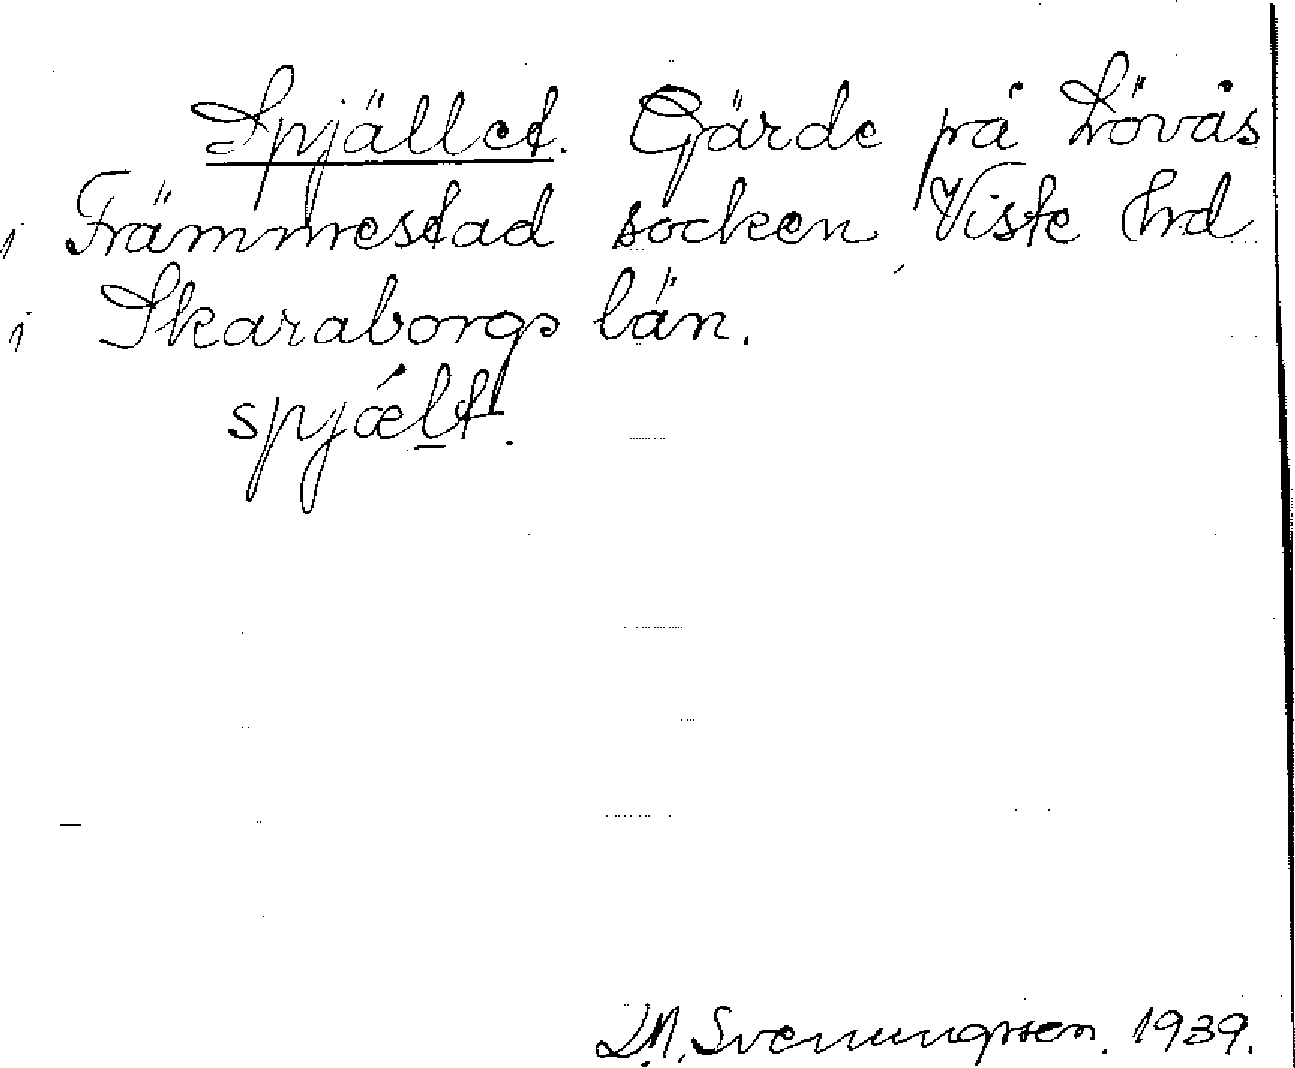 Spjället. Gärde på Lövås
i Främmestad socken, Viste hrd
i Skaraborgs län.
spjæ̀l̠t.
D.N. Svenungsson. 1939.